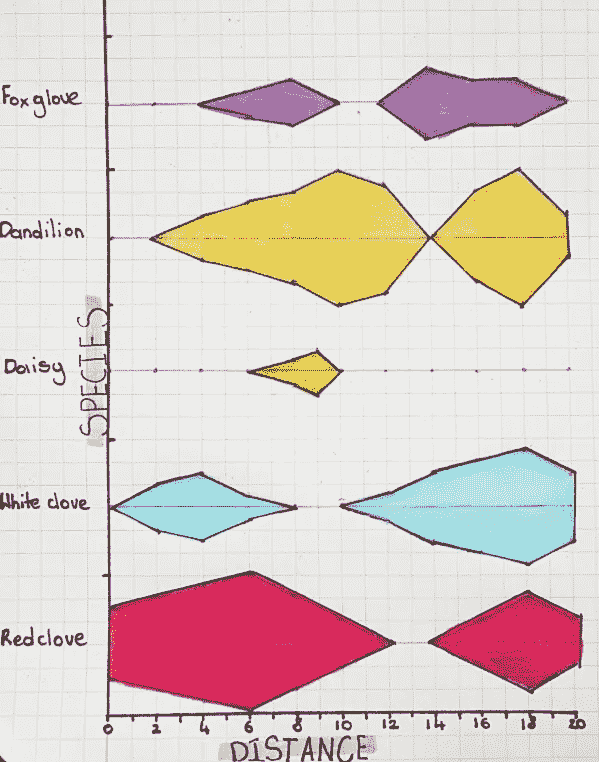 Foxglove
Dandilion
Daisy
SPECIES
White clove
Red clove
0 2 4 6 8 10 12 14 16 18 20
DISTANCE